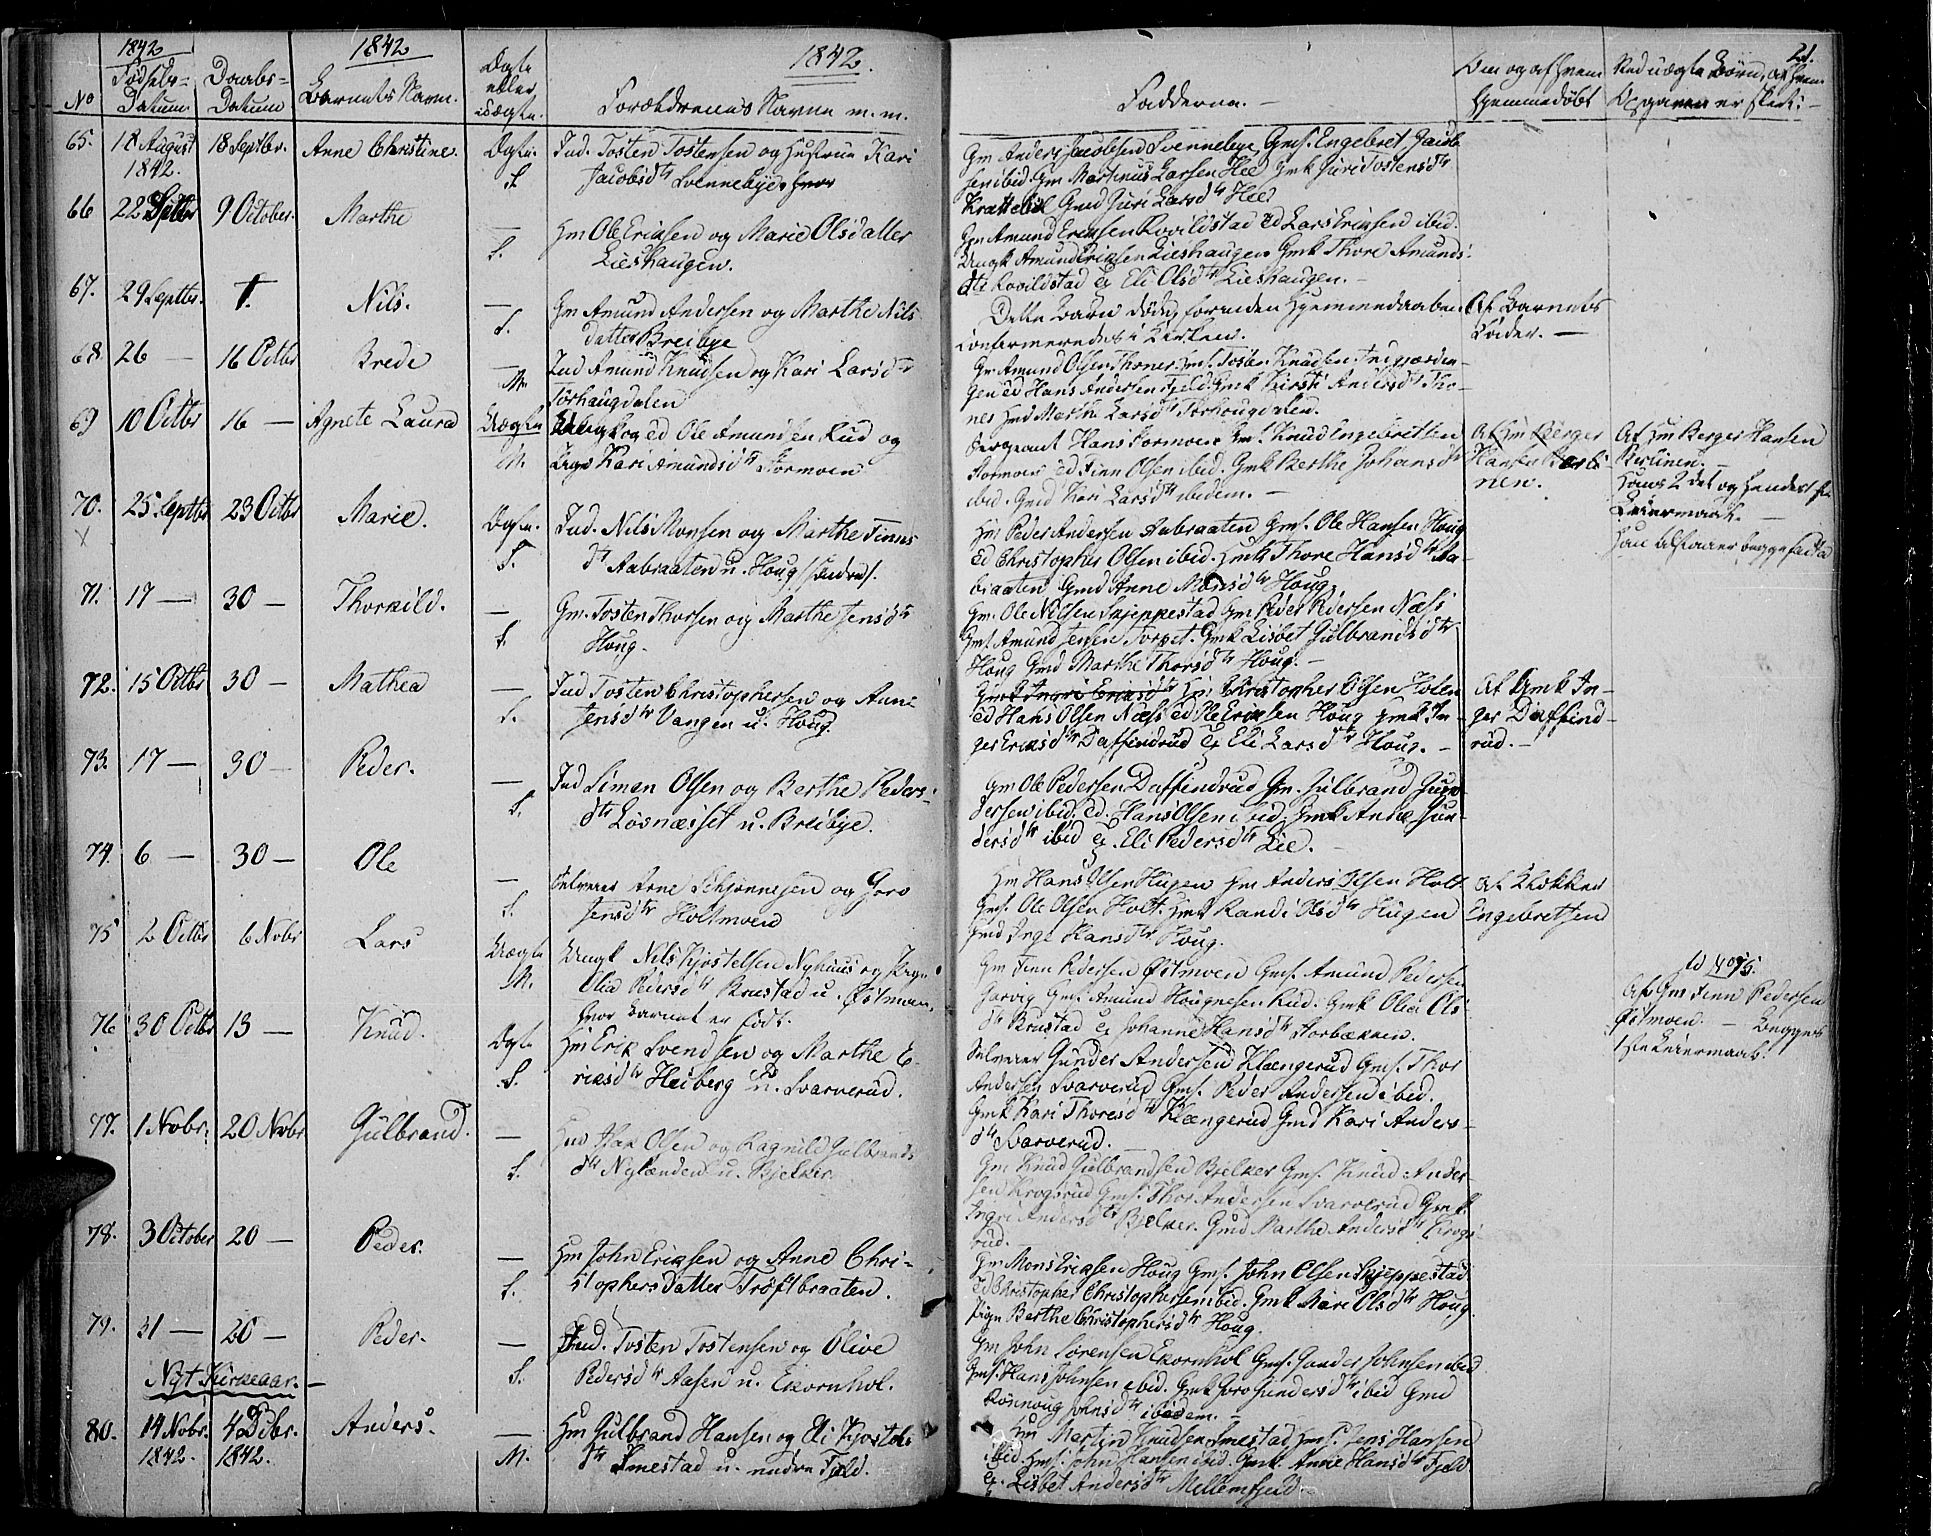 1842 1842 1842. 21.
No Fødsels-Datum Daabs-Datum Barnets Navn. Ægte eller uægte. Forældrenes Navne m. m. Fadderne. — Om og af hvem hjemmedøbt Ved uægte Børn, af hvem Opgaven er skedt. —
65. 18 August 1842. 18 Septbr. Anne Christine. Ægte. S. Ind. Tosten Tostensen og Hustrue Kari
Jacobsdtr Svennebye
Gm Anders Jacobsen Svennebye, Gmf. Engebret Jacob
sen ibid. Gm Martinus Larsen Hee Gmk Juri Tostensdtr
Krattebøl Gmd Juri Larsdtr Hee
66 22 Septbr 9 October. Marthe — S. Hm Ole Eriksen og Marie Olsdatter
Lieshaugen.
Gm Amund Eriksen Rovildstad Ed Lars Eriksen ibid.
Ungk Amund Eriksen Lieshaugen Gmk Thore Amunds-
dtr Rovildstad & Eli Olsdtr Lieshaugen. —
67. 29 Septbr. †. Nils. — S. Gm Amund Andersen og Marthe Nils
datter Breibye
Dette Barn døde, forinden Hjemmedaaben
confirmeredes i Kirken.
Af Barnets
Fader. —
68 26 — 16 Octbr Brede — M. Ind Amund Knudsen og Kari Larsdtr
Torhaugdalen
Gm Amund Olsen Thoner Gmf. Tosten Knudsen Indgjærdin-
gen Ed Hans Andersen Fjeld. Gmk Kirsti Andersdtr Tho-
nes Gmd Marthe Larsdtr Torhougdalen.
69 10 Octbr 16 — Agnete Laura Uægte M. Ungk og Ed Ole Amundsen Rud og
Pige Kari Amundsdtr Formoen
Sergeant Hans Formoen Gmf. Knud Engebretsen
Formoen Ed Finn Olsen ibid. Gmk Berthe Johansdtr
ibid. Gmd Kari Larsdtr ibidem. —
Af Hm Berger
Hansen Berli-
nen.
Af Hm Berger Hansen
Berlinen. —
Hans 2det og hendes 1ste
Leiermaal. —
70. 25 Septbr 23 Octbr Marie. Ægte. S. Ind. Nils Monsen og Marthe Finns
dtr Aabraaten u. Houg (søndre).
Hm Peder Andersen Aabraaten Gmf. Ole Hansen Houg
Ed Christopher Olsen ibid. Hmk Thore Hansdtr Aa-
braaten Gmd Anne Monsdtr Houg.
71. 17 — 30 — Thorkild. — S. Gm. Tosten Thorsen og Marthe Jensdtr
Houg.
Gm. Ole Nilsen Skjeppestad Gm Peder Pedersen Næss
Gmf. Amund Jensen Torpet. Gmk Lisbet Gulbrandsdtr
Houg Gmd Marthe Thorsdtr Houg. —
72. 15 Octbr 30 — Mathea — S. Ind Tosten Christophersen og Anne
Jensdtr Vangen u. Houg.
Gmk Ingri Eriksdtr Hm Christopher Olsen Holen
Ed Hans Olsen Næss Ed Ole Eriksen Houg Gmk In-
ger Eriksdtr Daffindrud & Eli Larsdtr Houg. —
Af Gmk In-
ger Daffind-
rud. —
73. 17 — 30 — Peder. — S. Ind Simen Olsen og Berthe Peders-
dtr Løsnæsset u. Breibye.
Gm Ole Pedersen Daffindrud Gm. Gulbrand Gun-
dersen ibid. Ed. Hans Olsen ibid. Gmk Anne Gun-
dersdtr ibid & Eli Pedersdtr Lie. —
74. 6 — 30 — Ole — S. Selveier Arne Schjønnesen og Goro
Jensdtr Holtmoen
Hm Hans Olsen Hugen Hm Anders Olsen Holt
Gmf. Ole Olsen Holt. Hmk Randi Olsdtr Hugen
Gmd Inge Hansdtr Houg.
Af Klokker
Engebretsen
75 2 Octbr 6 Novbr Lars Uægte M. Ungk Nils Kjostelsen Nyhuus og Pige
Olia Pedersdtr Brustad u. Østmoen,
hvor Barnet er født.
Gm Finn Pedersen Østmoen Gmf. Amund Pedersen
Garvig Gmf. Amund Hougnesen Rud. Gmk Olea Ols
dtr Brustad & Johanne Hansdtr Storbækken.
Af Gm Finn Pedersen
Østmoen. — Begges
1ste Leiermaal.
76 30 Octbr 13 — Knud. Ægte S. Hm Erik Svendsen og Marthe E-
riksdtr Heiberg u. Svarverud.
Selveier Gunder Andersen Klængerud Gmf. Thor
Andersen Svarverud Gmf. Peder Andersen ibid.
Gmk Kari Thoresdtr Klængerud Gmd Kari Anders-
dtr Svarverud.
77. 1 Novbr. 20 Novbr Gulbrand. — S. Hm Isak Olsen og Ragnild Gulbrands
dtr Nylænden u. Bjelker.
Gm Knud Gulbrandsen Bjelker Gmf. Knud Ander
sen Krogsrud Gmf. Thor Andersen Svarverud Gmk
Ingri Andersdtr Bjelker. Gmd Marthe Andersdtr Krogs-
rud.
78. 3 October 20 — Peder. — S. Hm John Eriksen og Anne Chri-
stophers Datter Trøftbraaten.
Gm Mons Eriksen Houg Gmf. John Olsen Skjeppestad
Ed Christopher Christophersen ibid. Gmk Kari Olsdtr Houg.
Pige Berthe Christophersdtr Houg.
79. 31 — 20 — Peder. — S. Ind. Tosten Tostensen og Olive
Pedersdtr Aasen u. Ekornhol.
Gm John Sørensen Ekornhol Gmf. Gunder Johnsen ibid
Gmf. Hans Johnsen ibid. Gmk Goro Gundersdtr ibid Gmd
Rønnoug Johnsdtr ibidem. —
Nyt Kirkeaar. —
80. 14 Novbr. 1842. 4 Dcbr. 1842. Anders. — M. Hm Gulbrand Hansen og Eli Kjostels
dtr Smestad u. nedre Fjeld.
Hm Martin Knudsen Smestad Hmf. Jens Hansen
ibid. Hmf. John Hansen ibid. Gmk Anne Hansdtr Fjeld
& Lisbet Andersdtr Mellemfjeld —